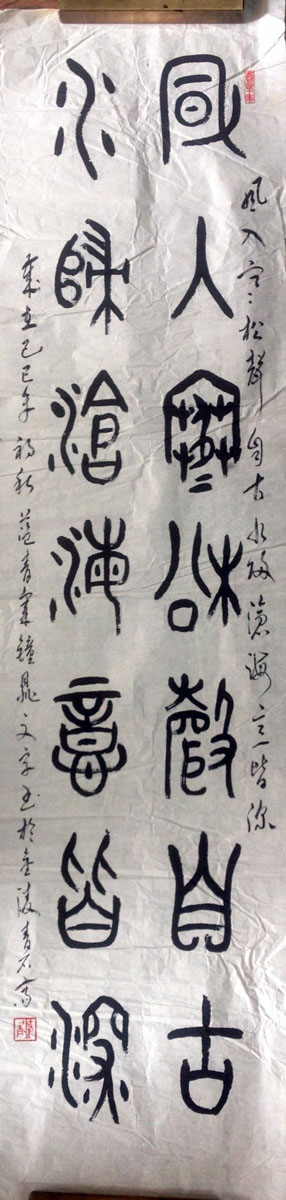 風入寒松聲自古
水歸滄海意皆深
風入寒松聲自古水歸滄海意皆深
歲在己巳年初秋范青集鐘鼎文字書於金陵青石